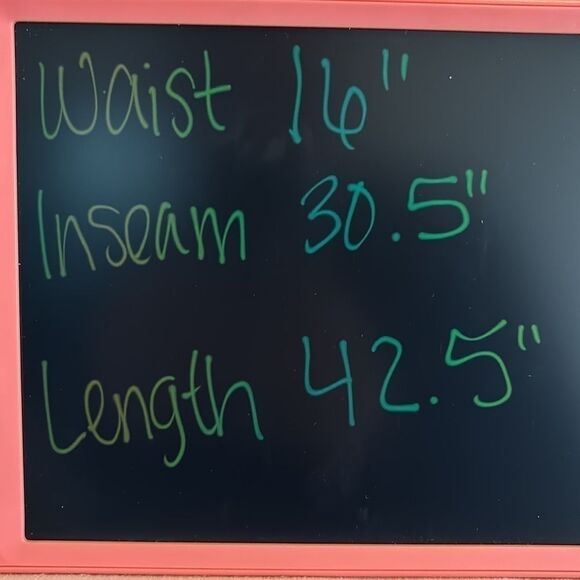 Waist 16"
Inseam 30.5"
Length 42.5"